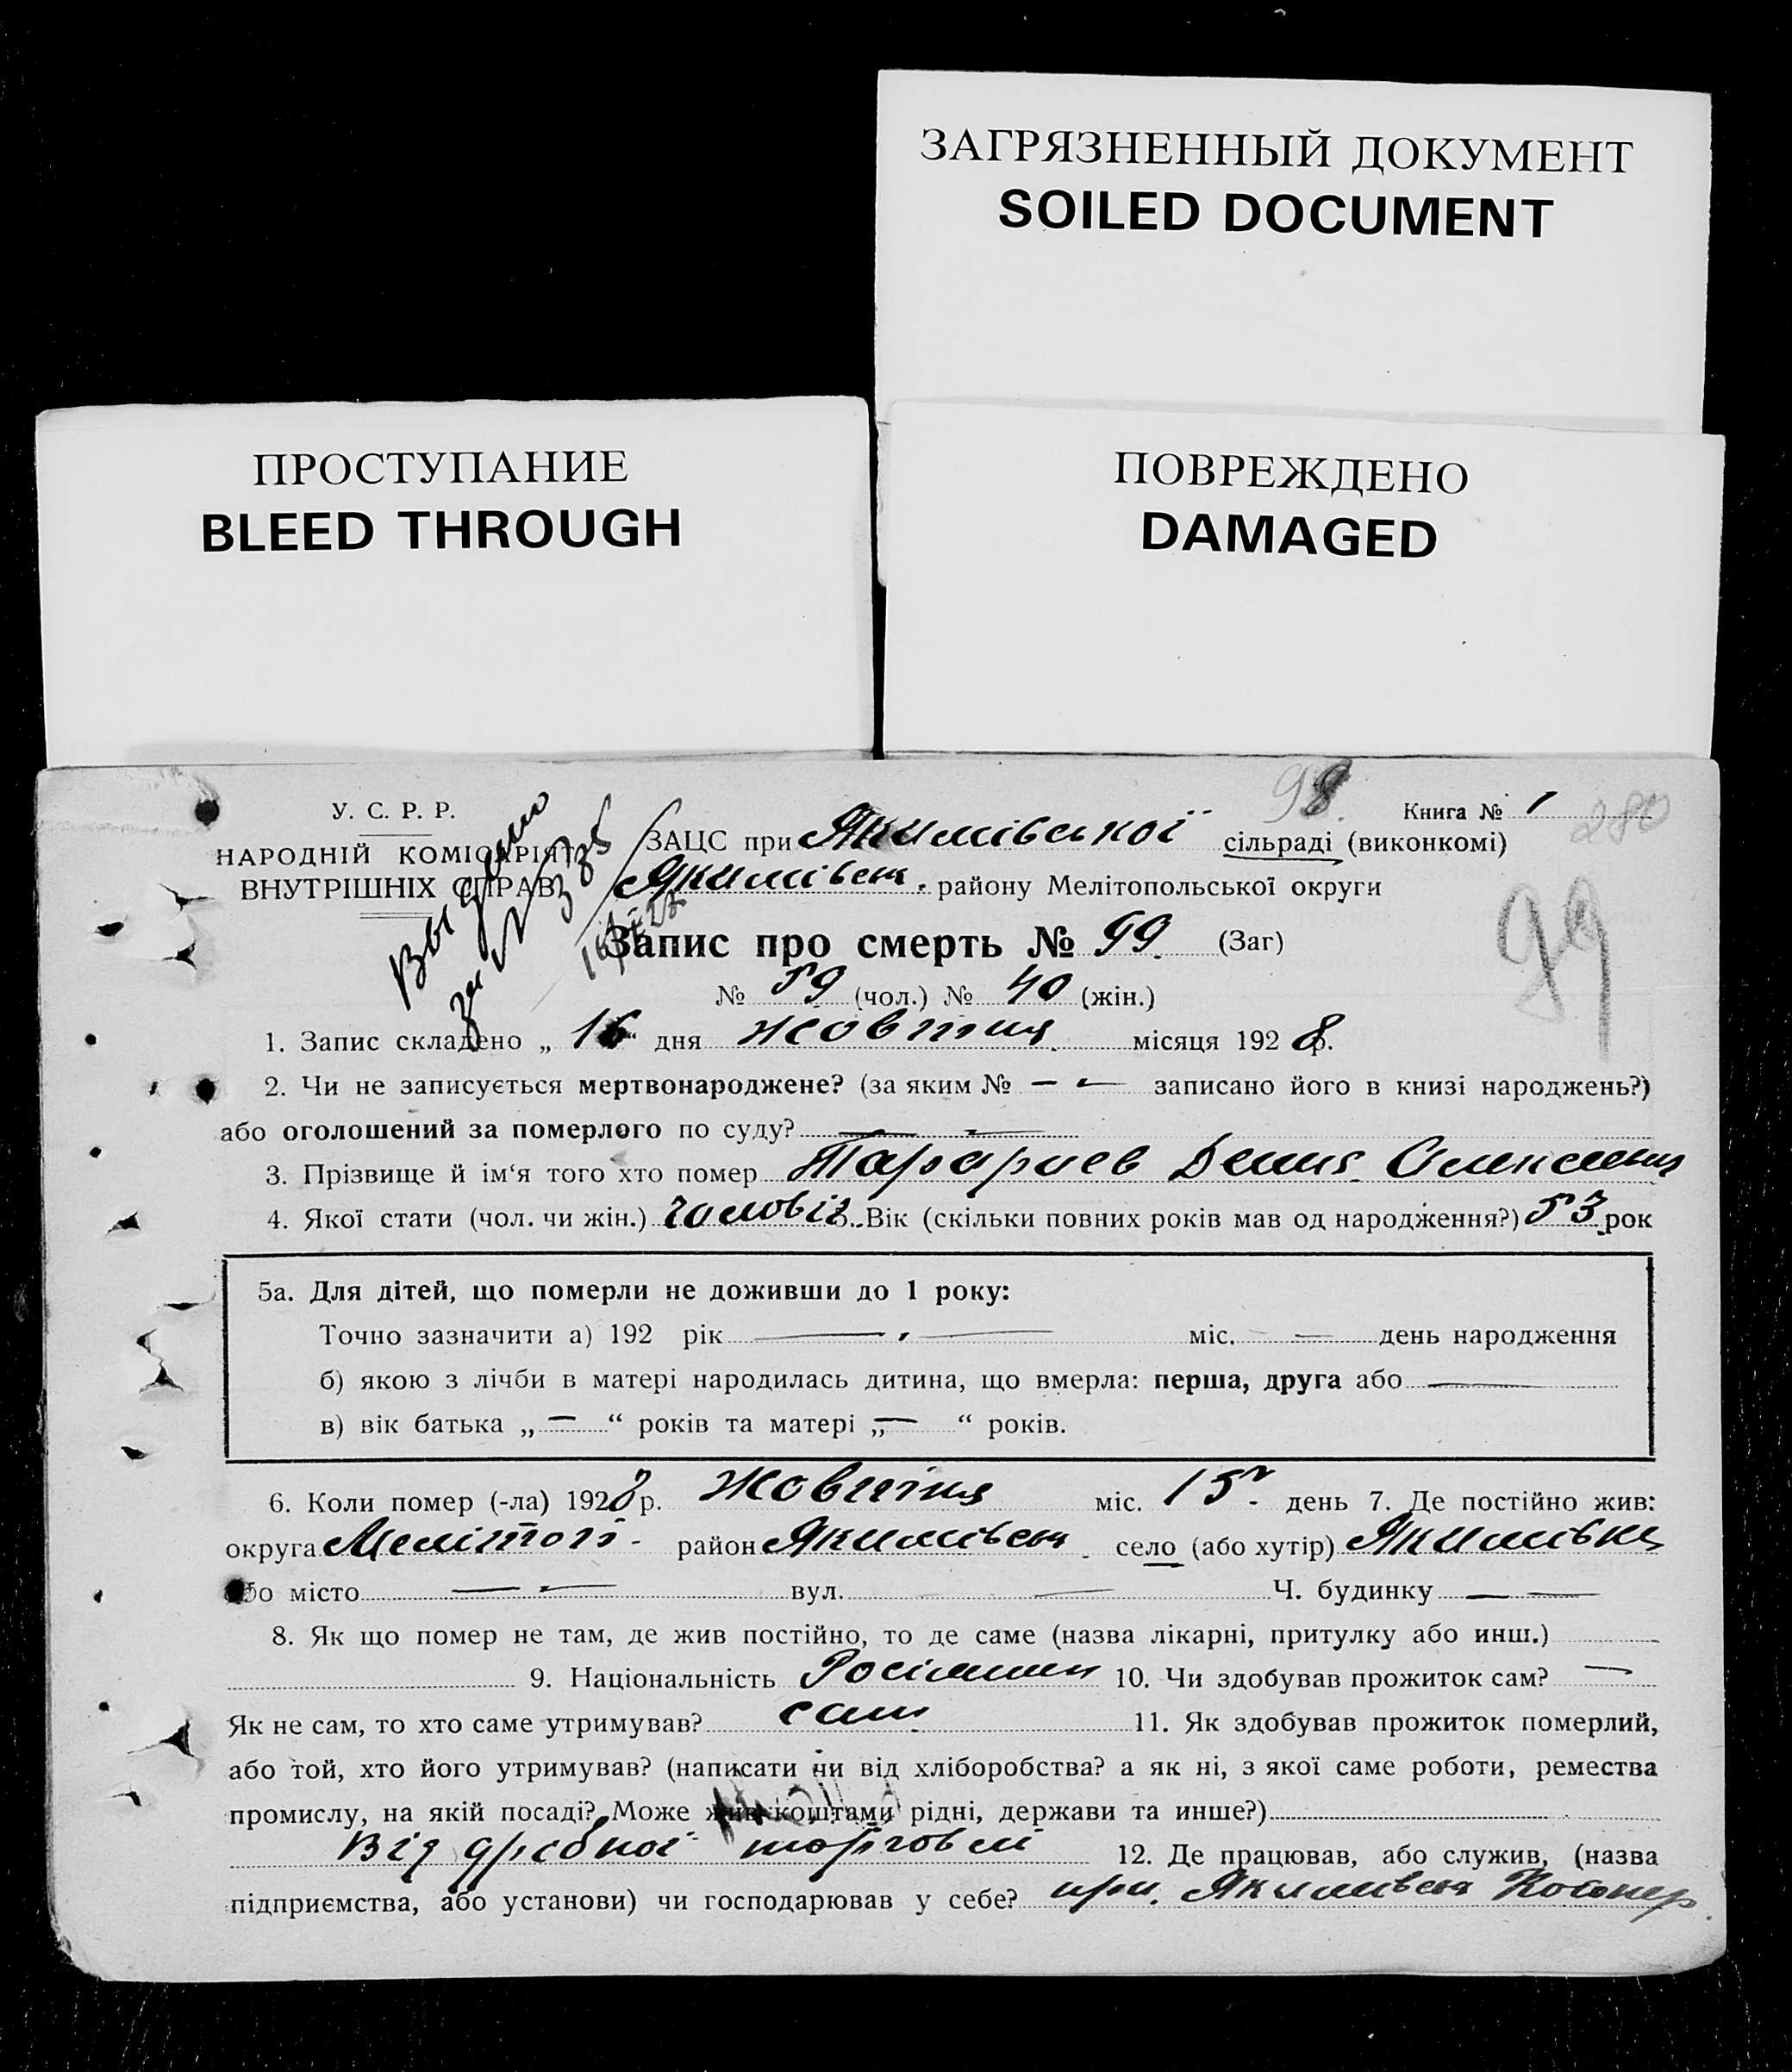 ЗАГРЯЗНЕННЫЙ ДОКУМЕНТ
SOILED DOCUMENT
ПРОСТУПАНИЕ
BLEED THROUGH
ПОВРЕЖДЕНО
DAMAGED
98.
Книга № 1
280
У. С. Р. Р.
НАРОДНІЙ КОМІСАРІЯТ
ВНУТРІШНІХ СПРАВ
Выдано
за № 335
ЗАЦС при Якимівської сільраді (виконкомі)
Якимівськ. району Мелітопольської округи
99
Запис про смерть № 99. (Заг)
№ 59 (чол.) № 40 (жін.)
1. Запис складено „ 16 “ дня жовтня місяця 1928 р.
2. Чи не записується мертвонароджене? (за яким № — — записано його в книзі народжень?)
або оголошений за померлого по суду? — —
3. Прізвище й ім‘я того хто помер Денис
4. Якої стати (чол. чи жін.) чоловіч. Вік (скільки повних років мав од народження?) 53 рок
5а. Для дітей, що померли не доживши до 1 року:
Точно зазначити а) 192 рік — — міс. — день народження
б) якою з лічби в матері народилась дитина, що вмерла: перша, друга або —
в) вік батька „ — “ років та матері „ — “ років.
6. Коли помер (-ла) 1928 р. жовтня міс. 15 день 7. Де постійно жив:
округа Мелітоп район Якимівськ. село (або хутір) Якимівка
або місто — — вул. — Ч. будинку — —
8. Як що помер не там, де жив постійно, то де саме (назва лікарні, притулку або инш.)
9. Національність Росіянин 10. Чи здобував прожиток сам? —
Як не сам, то хто саме утримував? сам 11. Як здобував прожиток померлий,
або той, хто його утримував? (написати чи від хліборобства? а як ні, з якої саме роботи, ремества
промислу, на якій посаді? Може жив коштами рідні, держави та инше?)
Від дрібної торговлі 12. Де працював, або служив, (назва
підприємства, або установи) чи господарював у себе? при Якимівськ